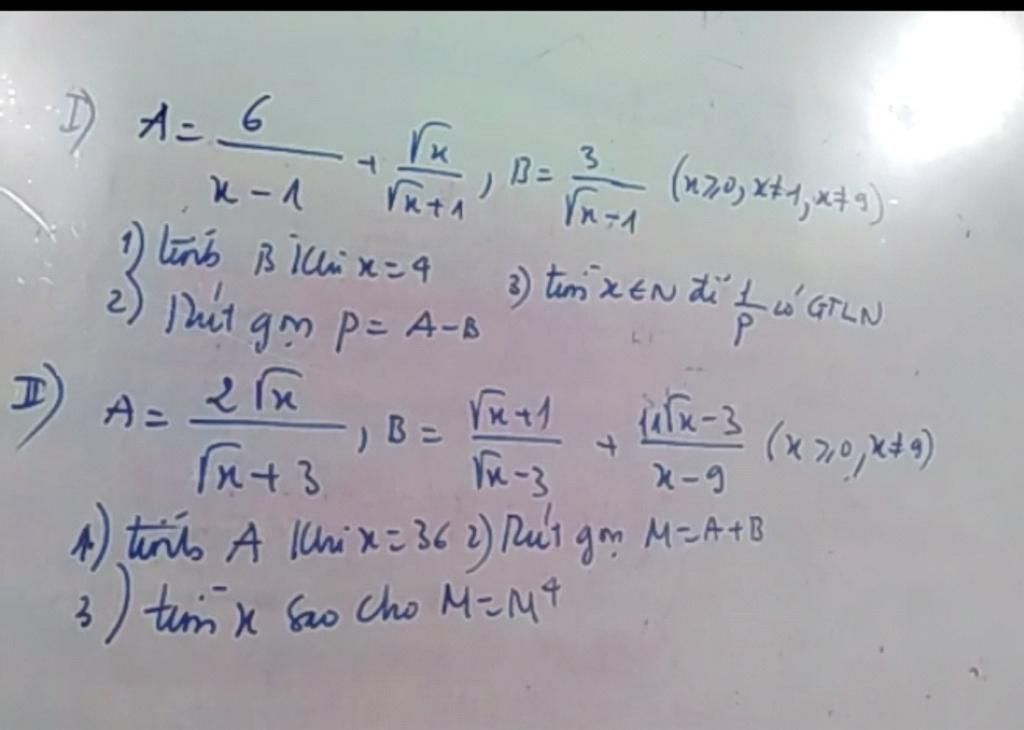 I) A = 6/(x - 1) + √x/(√x + 1), B = 3/(√x - 1) (x ≥ 0, x ≠ 1, x ≠ 9)
1) tính B khi x = 4
2) Rút gọn P = A - B
3) tìm x ∈ N để 1/P có GTLN
II) A = 2√x/(√x + 3), B = (√x + 1)/(√x - 3) + (11√x - 3)/(x - 9) (x ≥ 0, x ≠ 9)
1) tính A khi x = 36 2) Rút gọn M = A + B
3) tìm x sao cho M = M⁴